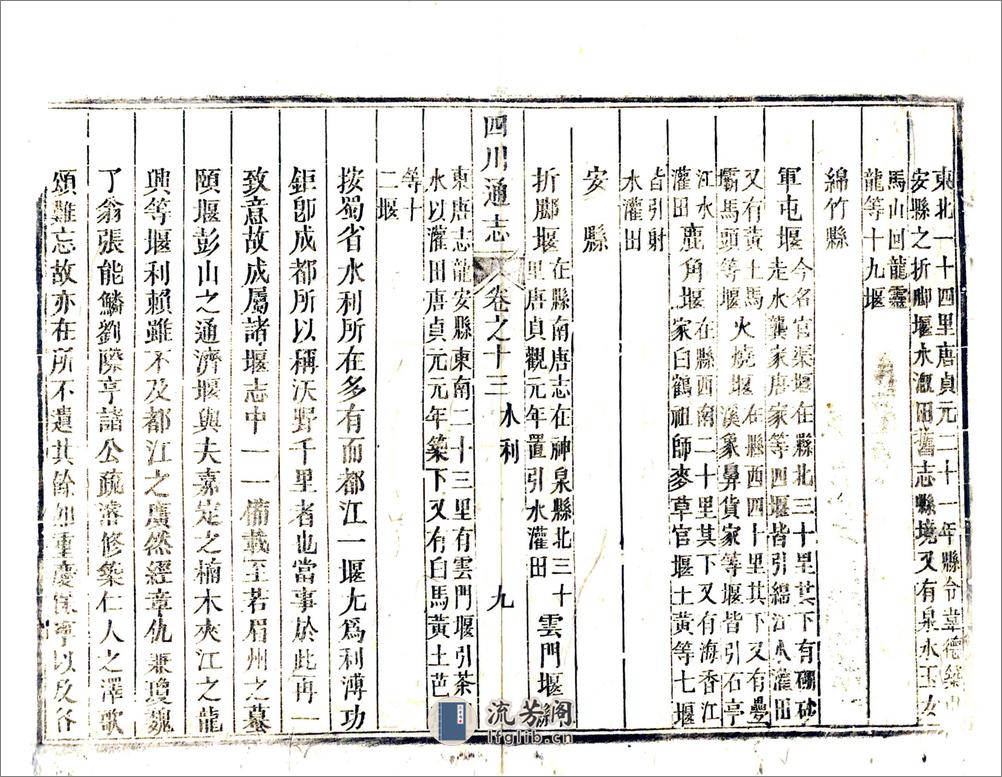 東北一十四里唐貞元二十一年縣令韋德築
安縣之折脚堰水溉田舊志縣境又有泉水玉女
馬山回龍靈
龍等十九堰
綿竹縣
軍屯堰今名官渠堰在縣北三十里其下有
走水龔家唐家等四堰皆引綿江水灌田
又有黃土馬
火燒堰在縣西四十里其下又有
壩馬頭等堰
溪象鼻貨家等堰皆引石亭
江水
灌田
鹿角堰在縣西南二十里其下又有海香江
家白鶴祖師麥草官堰土黃等七堰
皆引射
水灌田
安縣
折脚堰在縣南唐志在神泉縣北三十
里唐貞觀元年置引水灌田
雲門堰
四川通志
卷之十三
水利
九
東唐志龍安縣東南二十三里有雲門堰引茶
水以灌田唐貞元元年築下又有白馬黃土芭
等十
二堰
按蜀省水利所在多有而都江一堰尤爲利溥功
鉅卽成都所以稱沃野千里者也當事於此再一
致意故成屬諸堰志中一一備載至若眉州之蟇
頤堰彭山之通濟堰與夫嘉定之楠木夾江之龍
興等堰利賴雖不及都江之廣然經章仇兼瓊魏
了翁張能鱗劉際亨諸公疏濬修築仁人之澤歌
頌難忘故亦在所不遺其餘如重慶保寧以及各
流芳閣
lfglib.cn